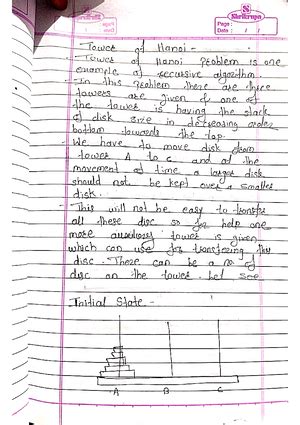 Shrikrupa
Page :
Date : / /
Tower of Hanoi -
- Tower of Hanoi problem is one
example of recursive algorithm
- In this problem there are three
towers are given & one of
the tower is having the stack
of disk size in decreasing order
bottom towards the top
- We have to move disk from
tower A to C and at the
movement of time a larger disk
should not be kept over a smaller
disk.
- This will not be easy to transfer
all these disc so for help one
more auxiliary tower is given
which can use for transfering the
disc. There can be a no of
disc on the tower. Let see
Initial State -
A B C